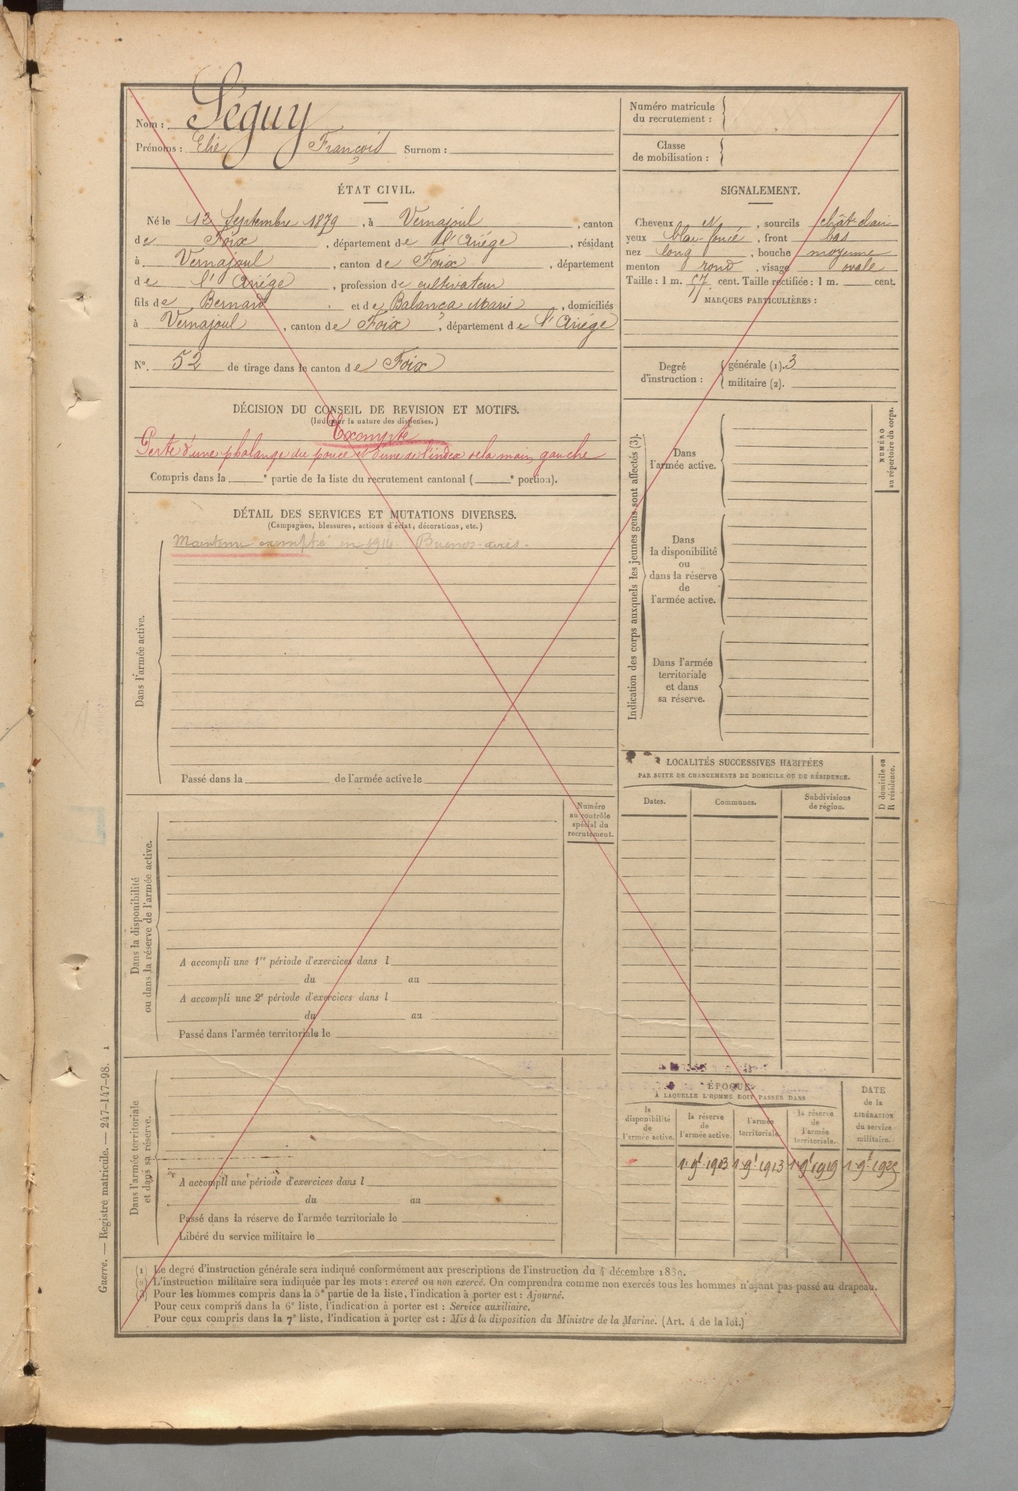 Nom : Séguy
Prénoms : Elie François Surnom :
Numéro matricule
du recrutement :
Classe
de mobilisation :
ÉTAT CIVIL.
Né le 12 Septembre 1879, à Vernajoul, canton
de Foix, département de l'Ariége, résidant
à Vernajoul, canton de Foix, département
de l'Ariége, profession de cultivateur
fils de Bernard et de Balança Marie, domiciliés
à Vernajoul, canton de Foix, département de l'Ariége
N°. 52 de tirage dans le canton de Foix
SIGNALEMENT.
Cheveux , sourcils chât-clair
yeux bleu foncé, front bas
nez long, bouche moyenne
menton rond, visage ovale
Taille : 1 m. 57 cent. Taille rectifiée : 1 m. cent.
MARQUES PARTICULIÈRES :
Degré
d'instruction :
générale (1). 3
militaire (2).
DÉCISION DU CONSEIL DE REVISION ET MOTIFS.
(Indiquer la nature des dispenses.)
Exempté
Perte d'une phalange du pouce et d'une de l'index de la main gauche
Compris dans la e partie de la liste du recrutement cantonal ( e portion).
DÉTAIL DES SERVICES ET MUTATIONS DIVERSES.
(Campagnes, blessures, actions d'éclat, décorations, etc.)
Maintenu exempté en 1914. Buenos-aires.
Dans l'armée active.
Passé dans la de l'armée active le
Indication des corps auxquels les jeunes gens sont affectés (3).
Dans
l'armée active.
Dans
la disponibilité
ou
dans la réserve
de
l'armée active.
Dans l'armée
territoriale
et dans
sa réserve.
NUMÉRO
au répertoire du corps.
LOCALITÉS SUCCESSIVES HABITÉES
PAR SUITE DE CHANGEMENTS DE DOMICILE OU DE RÉSIDENCE.
Dates.
Communes.
Subdivisions
de région.
D domicile ou
R résidence.
Numéro
au contrôle
spécial du
recrutement.
Dans la disponibilité
ou dans la réserve de l'armée active.
A accompli une 1re période d'exercices dans l
du au
A accompli une 2e période d'exercices dans l
du au
Passé dans l'armée territoriale le
Dans l'armée territoriale
et dans sa réserve.
A accompli une période d'exercices dans l
du au
Passé dans la réserve de l'armée territoriale le
Libéré du service militaire le
ÉPOQUE
À LAQUELLE L'HOMME DOIT PASSER DANS
la
disponibilité
de
l'armée active.
la réserve
de
l'armée active.
l'armée
territoriale.
la réserve
de
l'armée
territoriale.
DATE
de la
LIBÉRATION
du service
militaire.
(1) Le degré d'instruction générale sera indiqué conformément aux prescriptions de l'instruction du 4 décembre 1889.
(2) L'instruction militaire sera indiquée par les mots : exercé ou non exercé. On comprendra comme non exercés tous les hommes n'ayant pas passé au drapeau.
(3) Pour les hommes compris dans la 5e partie de la liste, l'indication à porter est : Ajourné.
Pour ceux compris dans la 6e liste, l'indication à porter est : Service auxiliaire.
Pour ceux compris dans la 7e liste, l'indication à porter est : Mis à la disposition du Ministre de la Marine. (Art. 4 de la loi.)
Guerre. — Registre matricule. — 247-147-98.